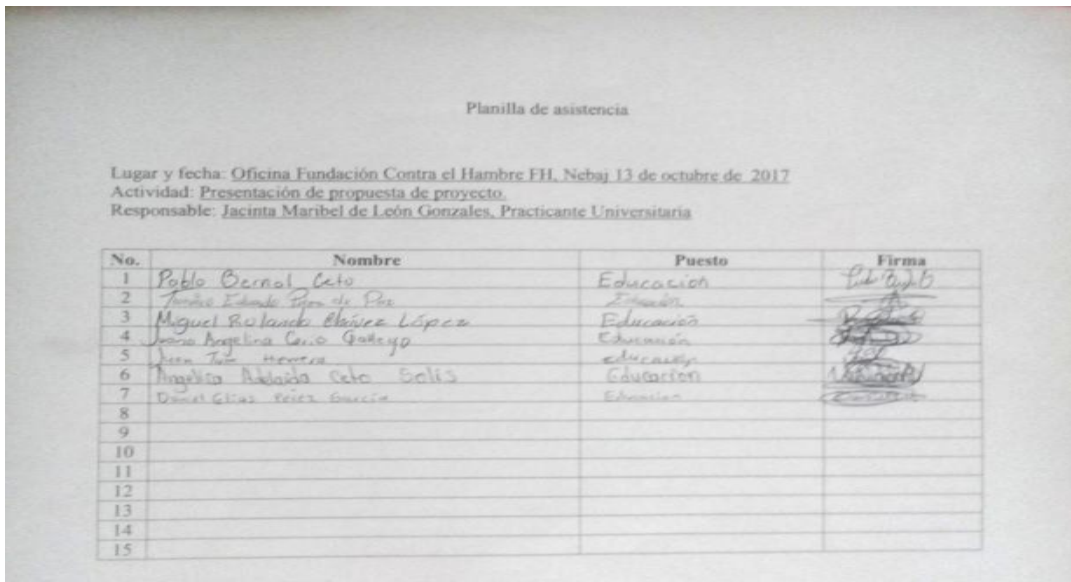 Planilla de asistencia
Lugar y fecha: Oficina Fundación Contra el Hambre FH, Nebaj 13 de octubre de 2017
Actividad: Presentación de propuesta de proyecto.
Responsable: Jacinta Maribel de León Gonzales, Practicante Universitaria
No. Nombre Puesto Firma
1 Pablo Bernal Ceto Educación
2 Eduardo de Paz Educación
3 Miguel Rolando Chávez López Educación
4 Angelina Educación
5 Juan Herrera educación
6 Angelica Adelaida Ceto Solis Educación
7 Daniel Elias Pérez García Educacion
8
9
10
11
12
13
14
15